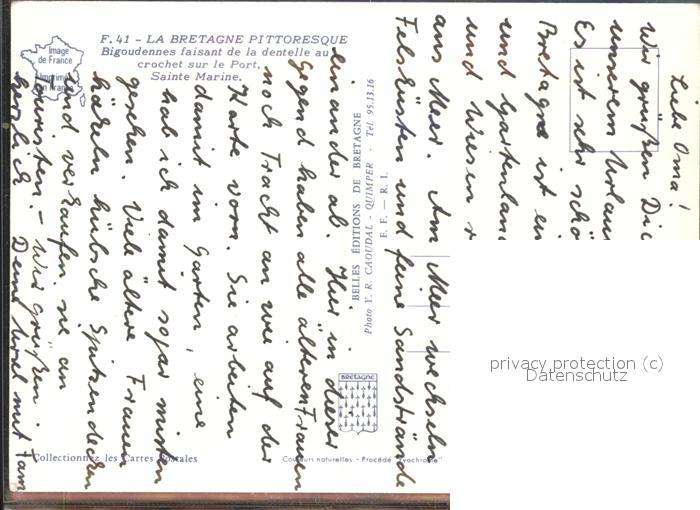 F. 41 – LA BRETAGNE PITTORESQUE
Bigoudennes faisant de la dentelle au
crochet sur le Port,
Sainte Marine.
Image
de France
Imprimé
en France
Liebe Oma!
Wir grüßen Dic
unserem Urlau
Es ist sehr schö
Bretagne ist ei
und Gartenlan
und Wiesen
ans Meer. Am Meer wechseln
Felsküsten und feine Sandstrände
einander ab. Hier in dieser
Gegend haben alle älteren Frauen
noch Tracht an wie auf der
Karte vorn. Sie arbeiten
damit im Garten, eine
hab ich damit sogar misten
gesehen. Viele ältere Frauen
häkeln hübsche Spitzendecken
und verkaufen sie an
Touristen. – Wir grüßen
herzlich Deine Ursel mit Fam
BELLES ÉDITIONS DE BRETAGNE
Photo Y. R. CAOUDAL - QUIMPER - Tél. 95.13.16
F. F. — R. I.
BRETAGNE
Collectionnez les Cartes Postales
Couleurs naturelles - Procédé "Lyochrome"
privacy protection (c)
Datenschutz